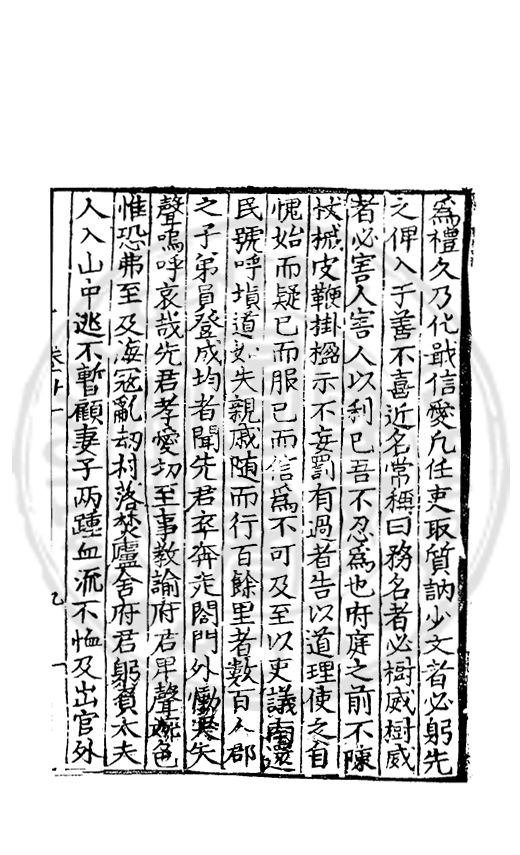 爲禮久乃化戢信愛凡任吏取質訥少文者必躬先
之俾入于善不喜近名常稱曰務名者必樹威樹威
者必害人害人以利已吾不忍爲也府庭之前不陳
杖械皮鞭掛楹示不妄罰有過者告以道理使之自
愧始而疑已而服已而信爲不可及至以吏議南還
民號呼塡道如失親戚随而行百餘里者數百人郡
之子弟員登成均者聞先君卒奔走閤門外慟哭失
聲嗚呼哀哉先君孝愛切至事敎諭府君卑聲婉色
惟恐弗至及海寇亂刼村落焚廬舍府君躬負太夫
人入山中逃不暫顧妻子两踵血流不恤及出官外
卷廿一
九